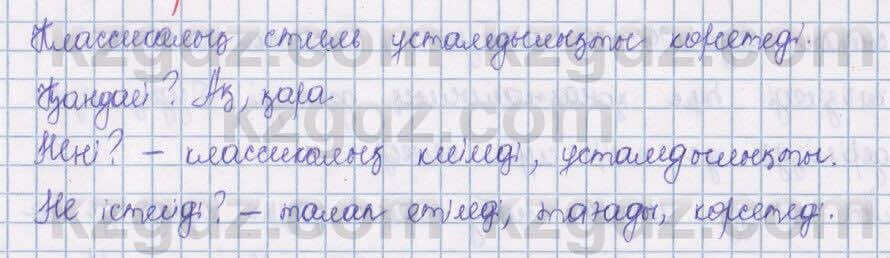 Классикалық стиль ұстамдылықты көрсетеді.
Қандай? Ақ, қара
Нені? – классикалық киімді, ұстамдылықты.
Не істейді? – талап етіледі, тағады, көрсетеді.
kzgdz.com